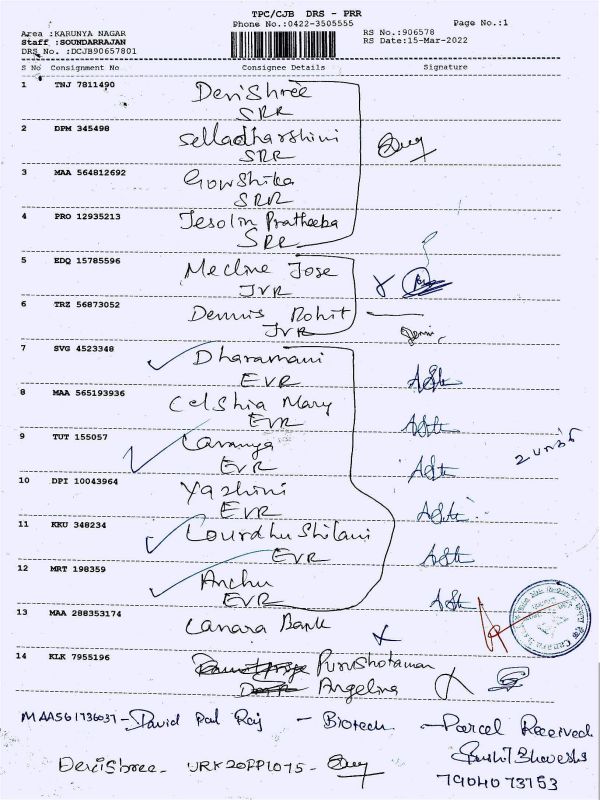 TPC/CJB DRS - PRR
Phone No.:0422-3505555
Page No.:1
Area :KARUNYA NAGAR
Staff :SOUNDARRAJAN
DRS No. :DCJB90657801
RS No.:906578
RS Date:15-Mar-2022
S No Consignment No Consignee Details Signature
1 TNJ 7811490 DeviShree
SRR
2 DPM 345498 Selladharshini
SRR
3 MAA 564812692 Gowshika
SRR
4 PRO 12935213 Jesolin Pratheeba
SRR
5 EDQ 15785596 Mecline Jose
JVR
6 TRZ 56873052 Dennis Rohit
JVR
7 SVG 4523348 Dharamani
EVR
8 MAA 565193936 Celshia Mary
EVR
9 TUT 155057 Lavanya
EVR
10 DPI 10043964 Yazhini
EVR
11 KKU 348234 Lourdhu Shilani
EVR
12 MRT 198359 Anchu
EVR
13 MAA 288353174 Canara Bank
14 KLK 7955196 Purushotaman
Angelina
MAA561736037 - David Paul Raj - Biotech - Parcel Received
DeviShree - URK20PP1075 -
7904073753